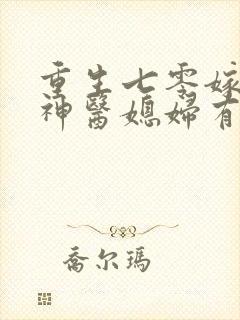 重生七零嫁
神醫媳婦有
喬尔瑪